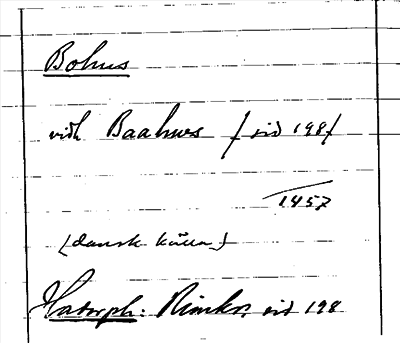 Bohus
vidh Baahws / sid 198/
1457
(dansk källa)
Hadorph: Rimkr, sid 198